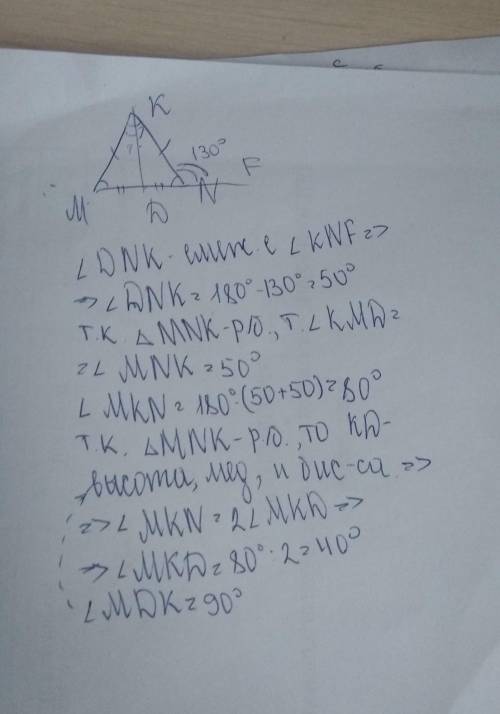 K
130°
F
M
D
N
∠DNK - смеж. с ∠KNF =>
=> ∠DNK = 180° - 130° = 50°
т.к. △MNK - р/б., т. ∠KMD =
= ∠MNK = 50°
∠MKN = 180° - (50+50) = 80°
т.к. △MNK - р/б., то KD -
высота, мед, и бис-са =>
=> ∠MKN = 2∠MKD =>
=> ∠MKD = 80° : 2 = 40°
∠MDK = 90°